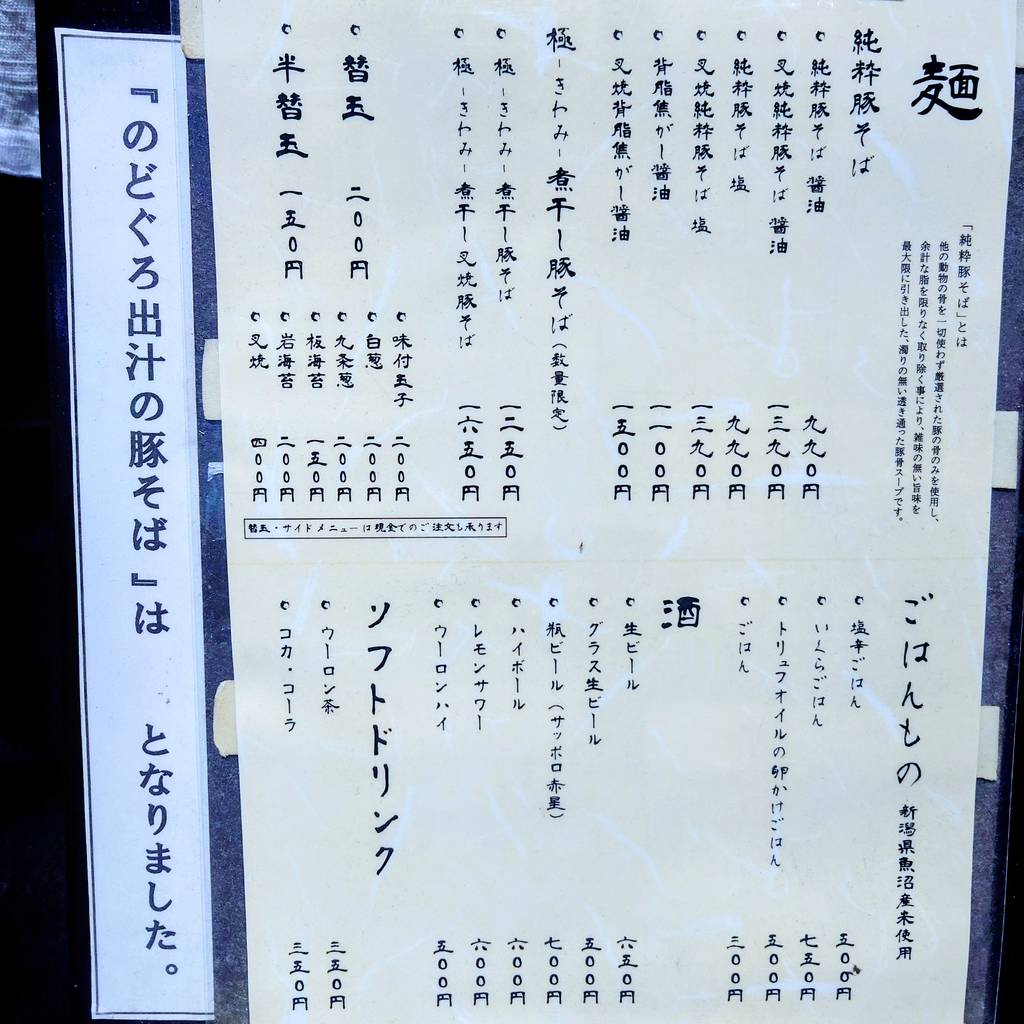 麺
「純粋豚そば」とは
他の動物の骨を一切使わず厳選された豚の骨のみを使用し、
余計な脂を限りなく取り除く事により、雑味の無い旨味を
最大限に引き出した、濁りの無い透き通った豚骨スープです。
純粋豚そば
純粋豚そば 醤油 九九〇円
叉焼純粋豚そば 醤油 一三九〇円
純粋豚そば 塩 九九〇円
叉焼純粋豚そば 塩 一三九〇円
背脂焦がし醤油 一一〇〇円
叉焼背脂焦がし醤油 一五〇〇円
極-きわみ-煮干し豚そば(数量限定)
極-きわみ-煮干し豚そば 一二五〇円
極-きわみ-煮干し叉焼豚そば 一六五〇円
替玉 二〇〇円
半替玉 一五〇円
味付玉子 二〇〇円
白葱 二〇〇円
九条葱 二〇〇円
板海苔 一五〇円
岩海苔 二〇〇円
叉焼 四〇〇円
替玉・サイドメニューは現金でのご注文も承ります
ごはんもの 新潟県魚沼産米使用
塩辛ごはん 五〇〇円
いくらごはん 七五〇円
トリュフオイルの卵かけごはん 五〇〇円
ごはん 三〇〇円
酒
生ビール 六五〇円
グラス生ビール 五〇〇円
瓶ビール(サッポロ赤星) 七〇〇円
ハイボール 六〇〇円
レモンサワー 六〇〇円
ウーロンハイ 五〇〇円
ソフトドリンク
ウーロン茶 三五〇円
コカ・コーラ 三五〇円
『のどぐろ出汁の豚そば』は となりました。